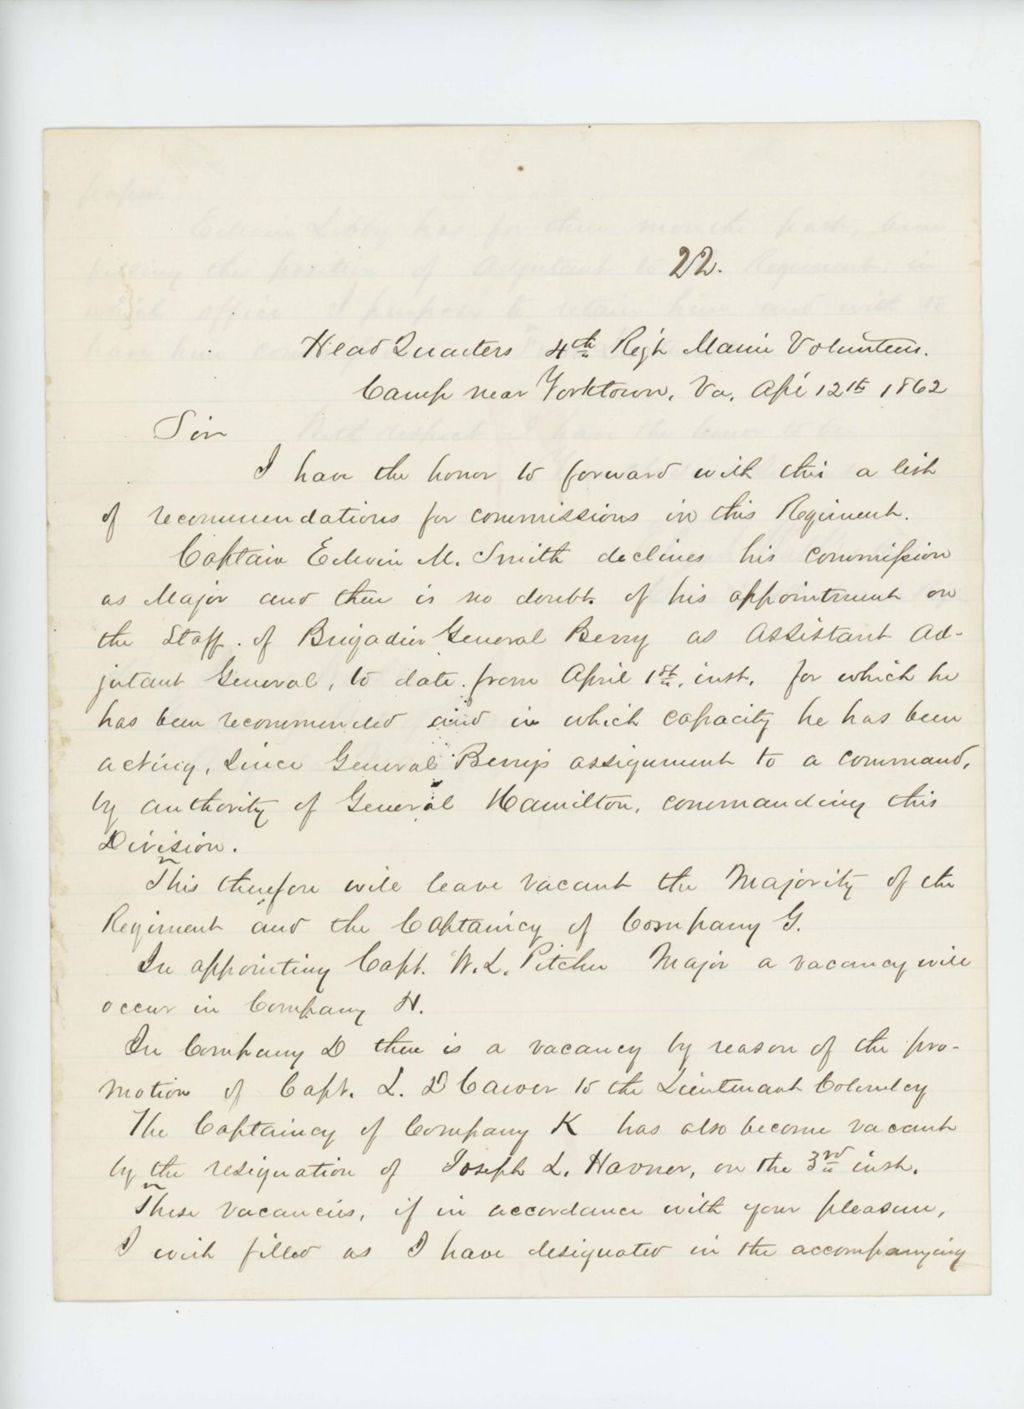 22.
Head Quarters 4th Regt. Maine Volunteers.
Camp near Yorktown, Va. Apl 12th 1862
Sir
I have the honor to forward with this a list
of recommendations for commissions in this Regiment.
Captain Edwin M. Smith declines his commission
as Major and there is no doubt of his appointment on
the Staff of Brigadier General Berry as Assistant Ad-
jutant General, to date from April 1st. inst. for which he
has been recommended and in which capacity he has been
acting, since General Berry's assignment to a command,
by authority of General Hamilton, commanding this
Division.
This therefore will leave vacant the Majority of the
Regiment and the Captaincy of Company G.
In appointing Capt. W. L. Pitcher Major a vacancy will
occur in Company H.
In Company D there is a vacancy by reason of the pro-
motion of Capt. L. D Carver to the Lieutenant Colonelcy
The Captaincy of Company K has also become vacant
by the resignation of Joseph L. Havner, on the 3rd inst.
These vacancies, if in accordance with your pleasure,
I wish filled as I have designated in the accompanying